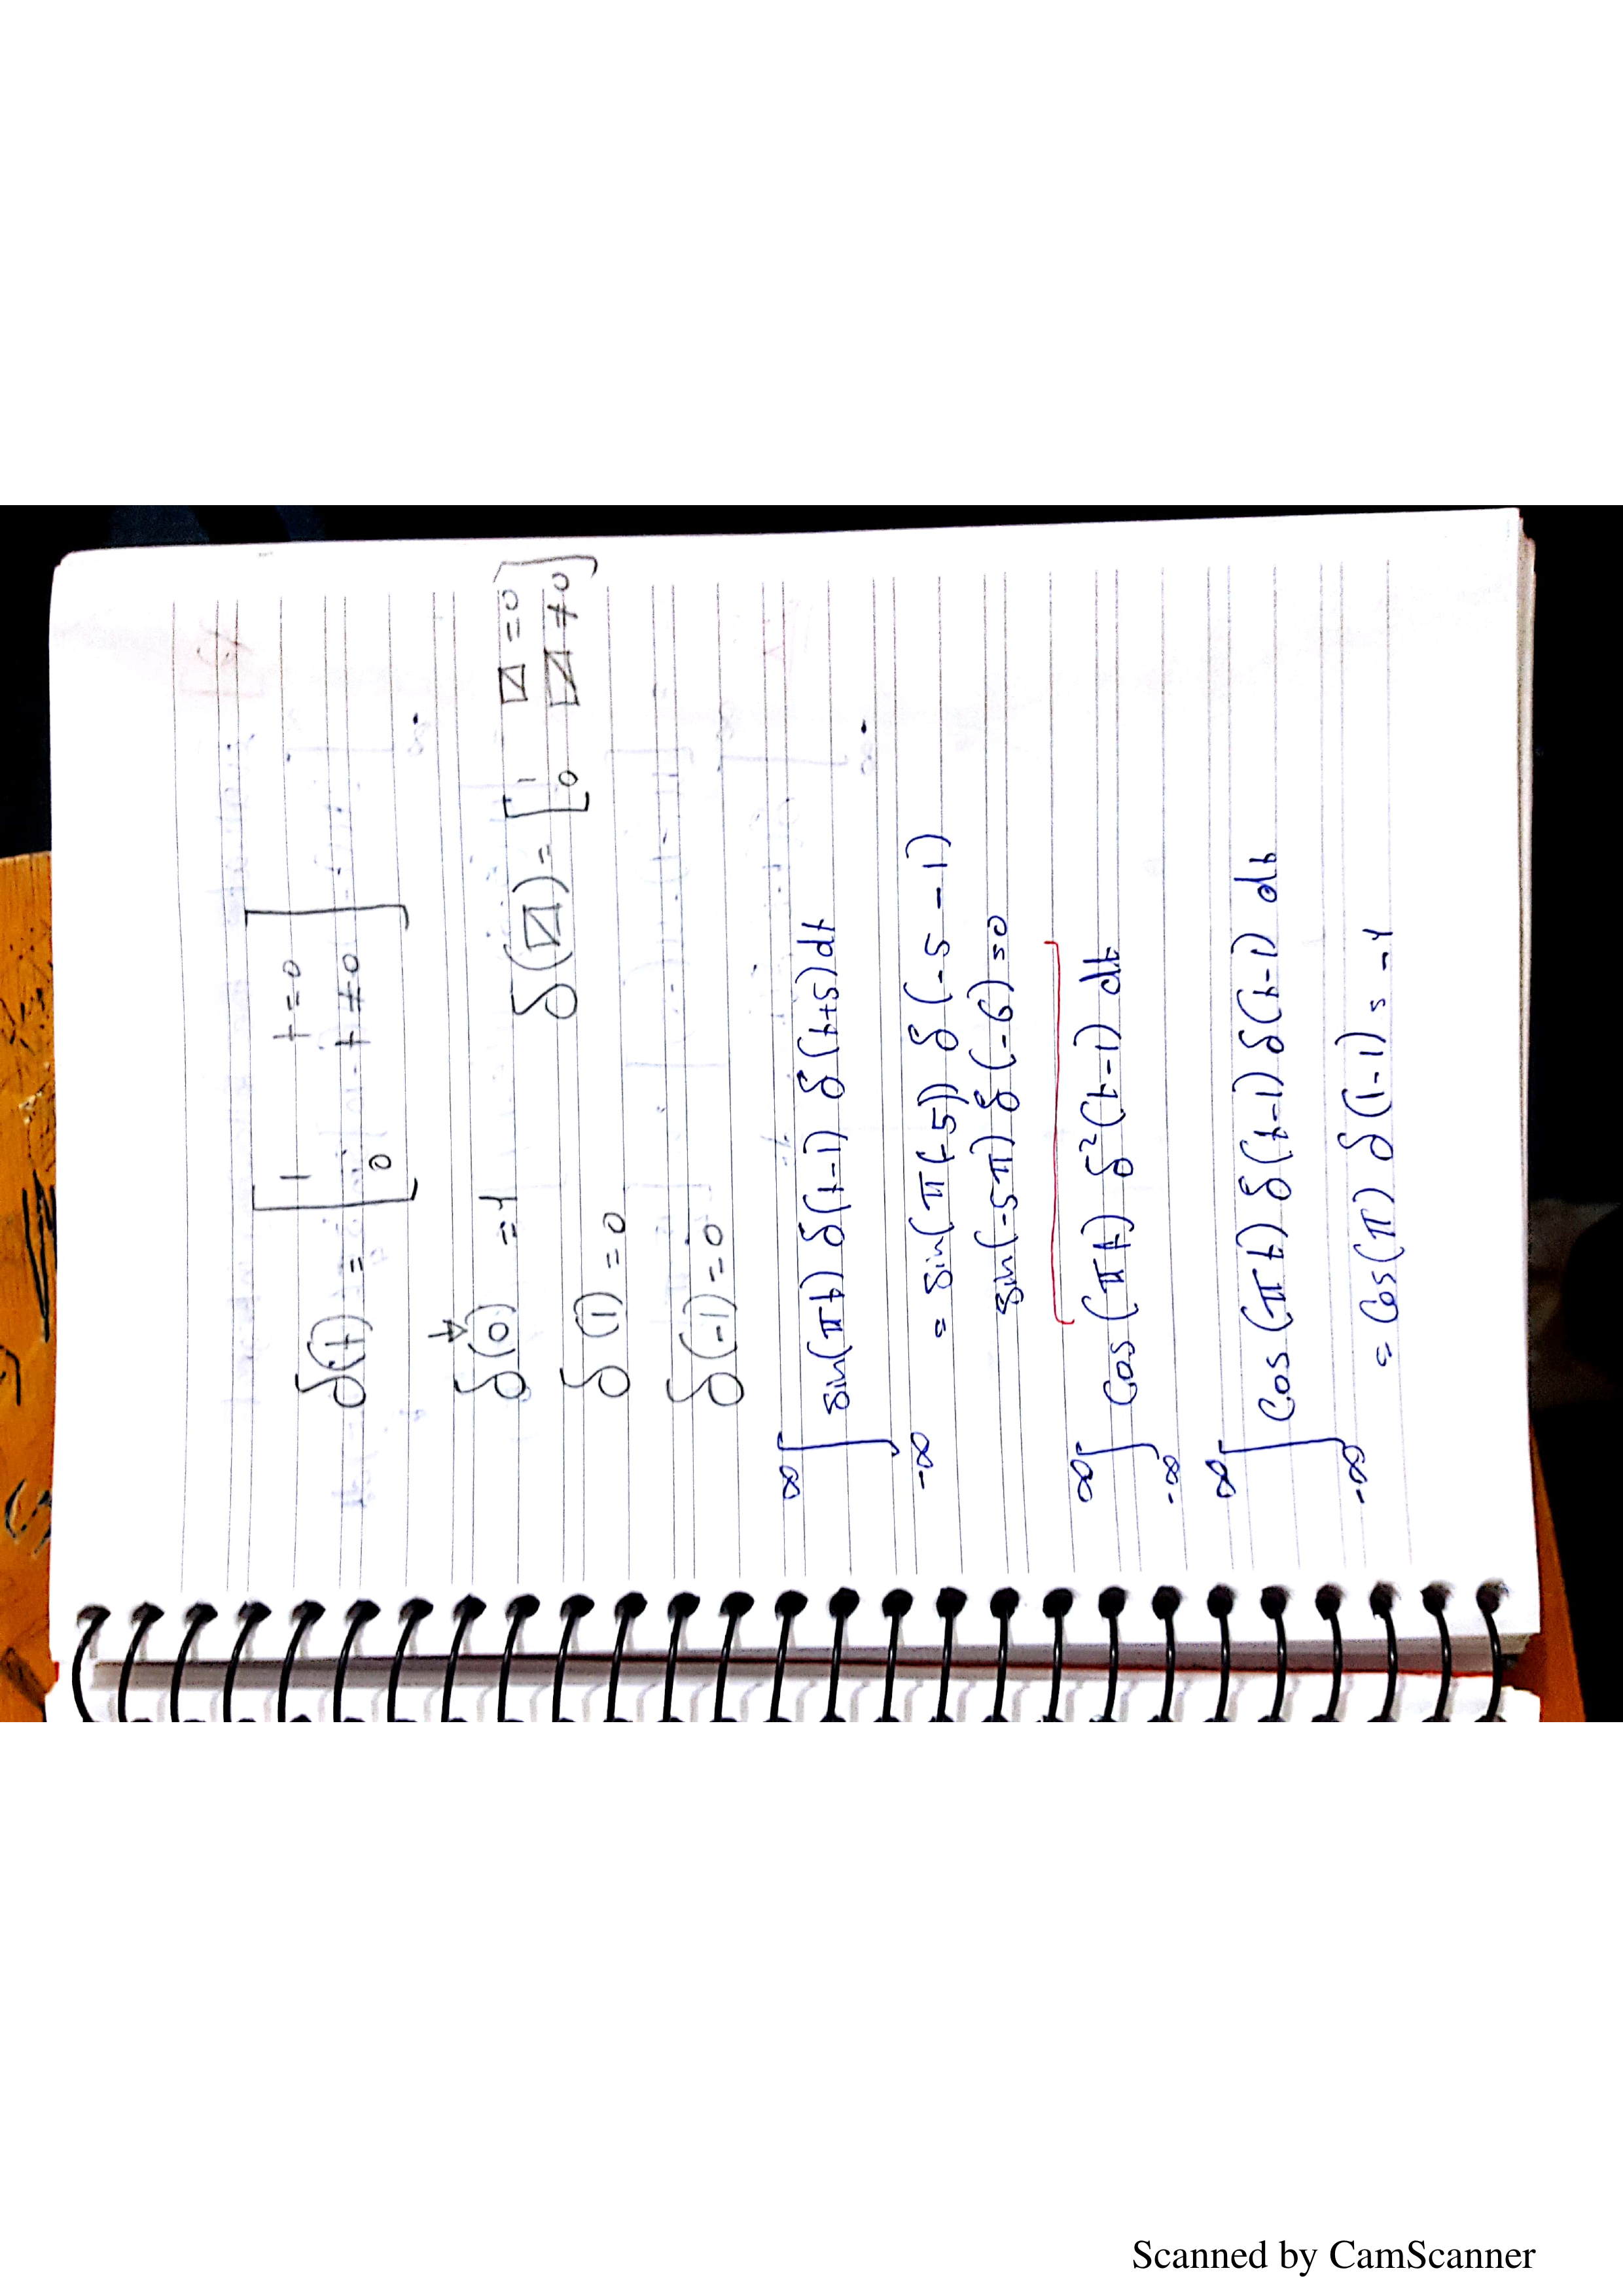 δ(t) = [ 1 t=0
0 t≠0 ]
δ(0) = 1
δ(☐) = [ 1 ☐=0
0 ☐≠0 ]
δ(1) = 0
δ(-1) = 0
∫_{-∞}^{∞} sin(πt) δ(t-1) δ(t+5) dt
= sin(π(-5)) δ(-5-1)
sin(-5π) δ(-6) = 0
∫_{-∞}^{∞} Cos(πt) δ²(t-1) dt
∫_{-∞}^{∞} Cos(πt) δ(t-1) δ(t-1) dt
= Cos(π) δ(1-1) = -1
Scanned by CamScanner